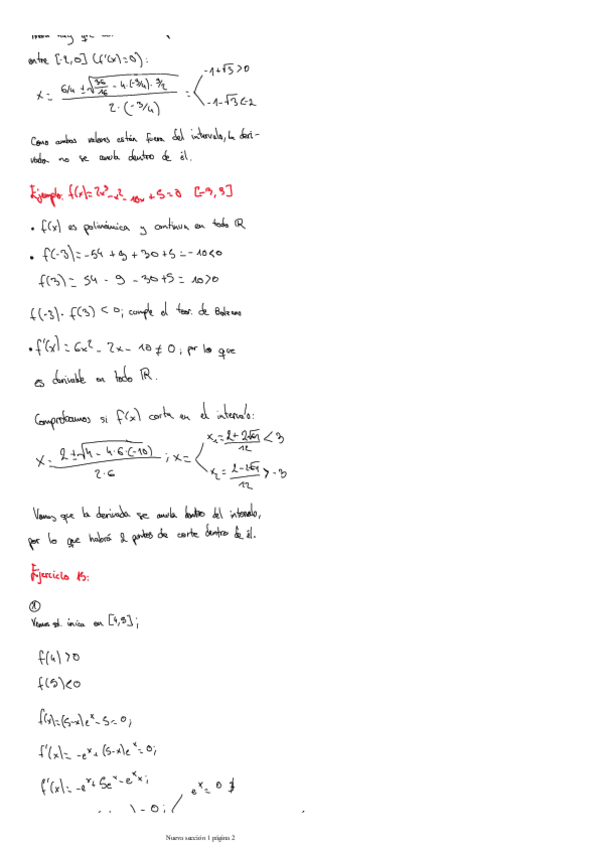 entre [-2,0] (f'(x)=0):
x = 6/4 ± √(36/16 - 4·(-3/4)·3/2) / 2·(-3/4) = -1+√3 > 0
-1-√3 < -2
Como ambos valores están fuera del intervalo, la deri-
vada no se anula dentro de él.
Ejemplo: f(x)=2x³-x²-10x+5=0 [-3,3]
• f(x) es polinómica y continua en todo ℝ
• f(-3)=-54+9+30+5=-10<0
f(3)= 54-9-30+5= 10>0
f(-3)·f(3)<0; cumple el teor. de Bolzano
• f'(x)=6x²-2x-10≠0; por lo que
es derivable en todo ℝ.
Comprobamos si f'(x) corta en el intervalo:
x= 2±√(4-4·6·(-10)) / 2·6 ; x= x₁= 2+2√61 / 12 < 3
x₂= 2-2√61 / 12 > -3
Vemos que la derivada se anula dentro del intervalo,
por lo que habrá 2 puntos de corte dentro de él.
Ejercicio 15:
①
Veamos sol. única en [4,5];
f(4)>0
f(5)<0
f(x)=(5-x)eˣ-5=0;
f'(x)=-eˣ+(5-x)eˣ=0;
f'(x)=-eˣ+5eˣ-eˣx; eˣ=0 ∄
Nueva sección 1 página 2